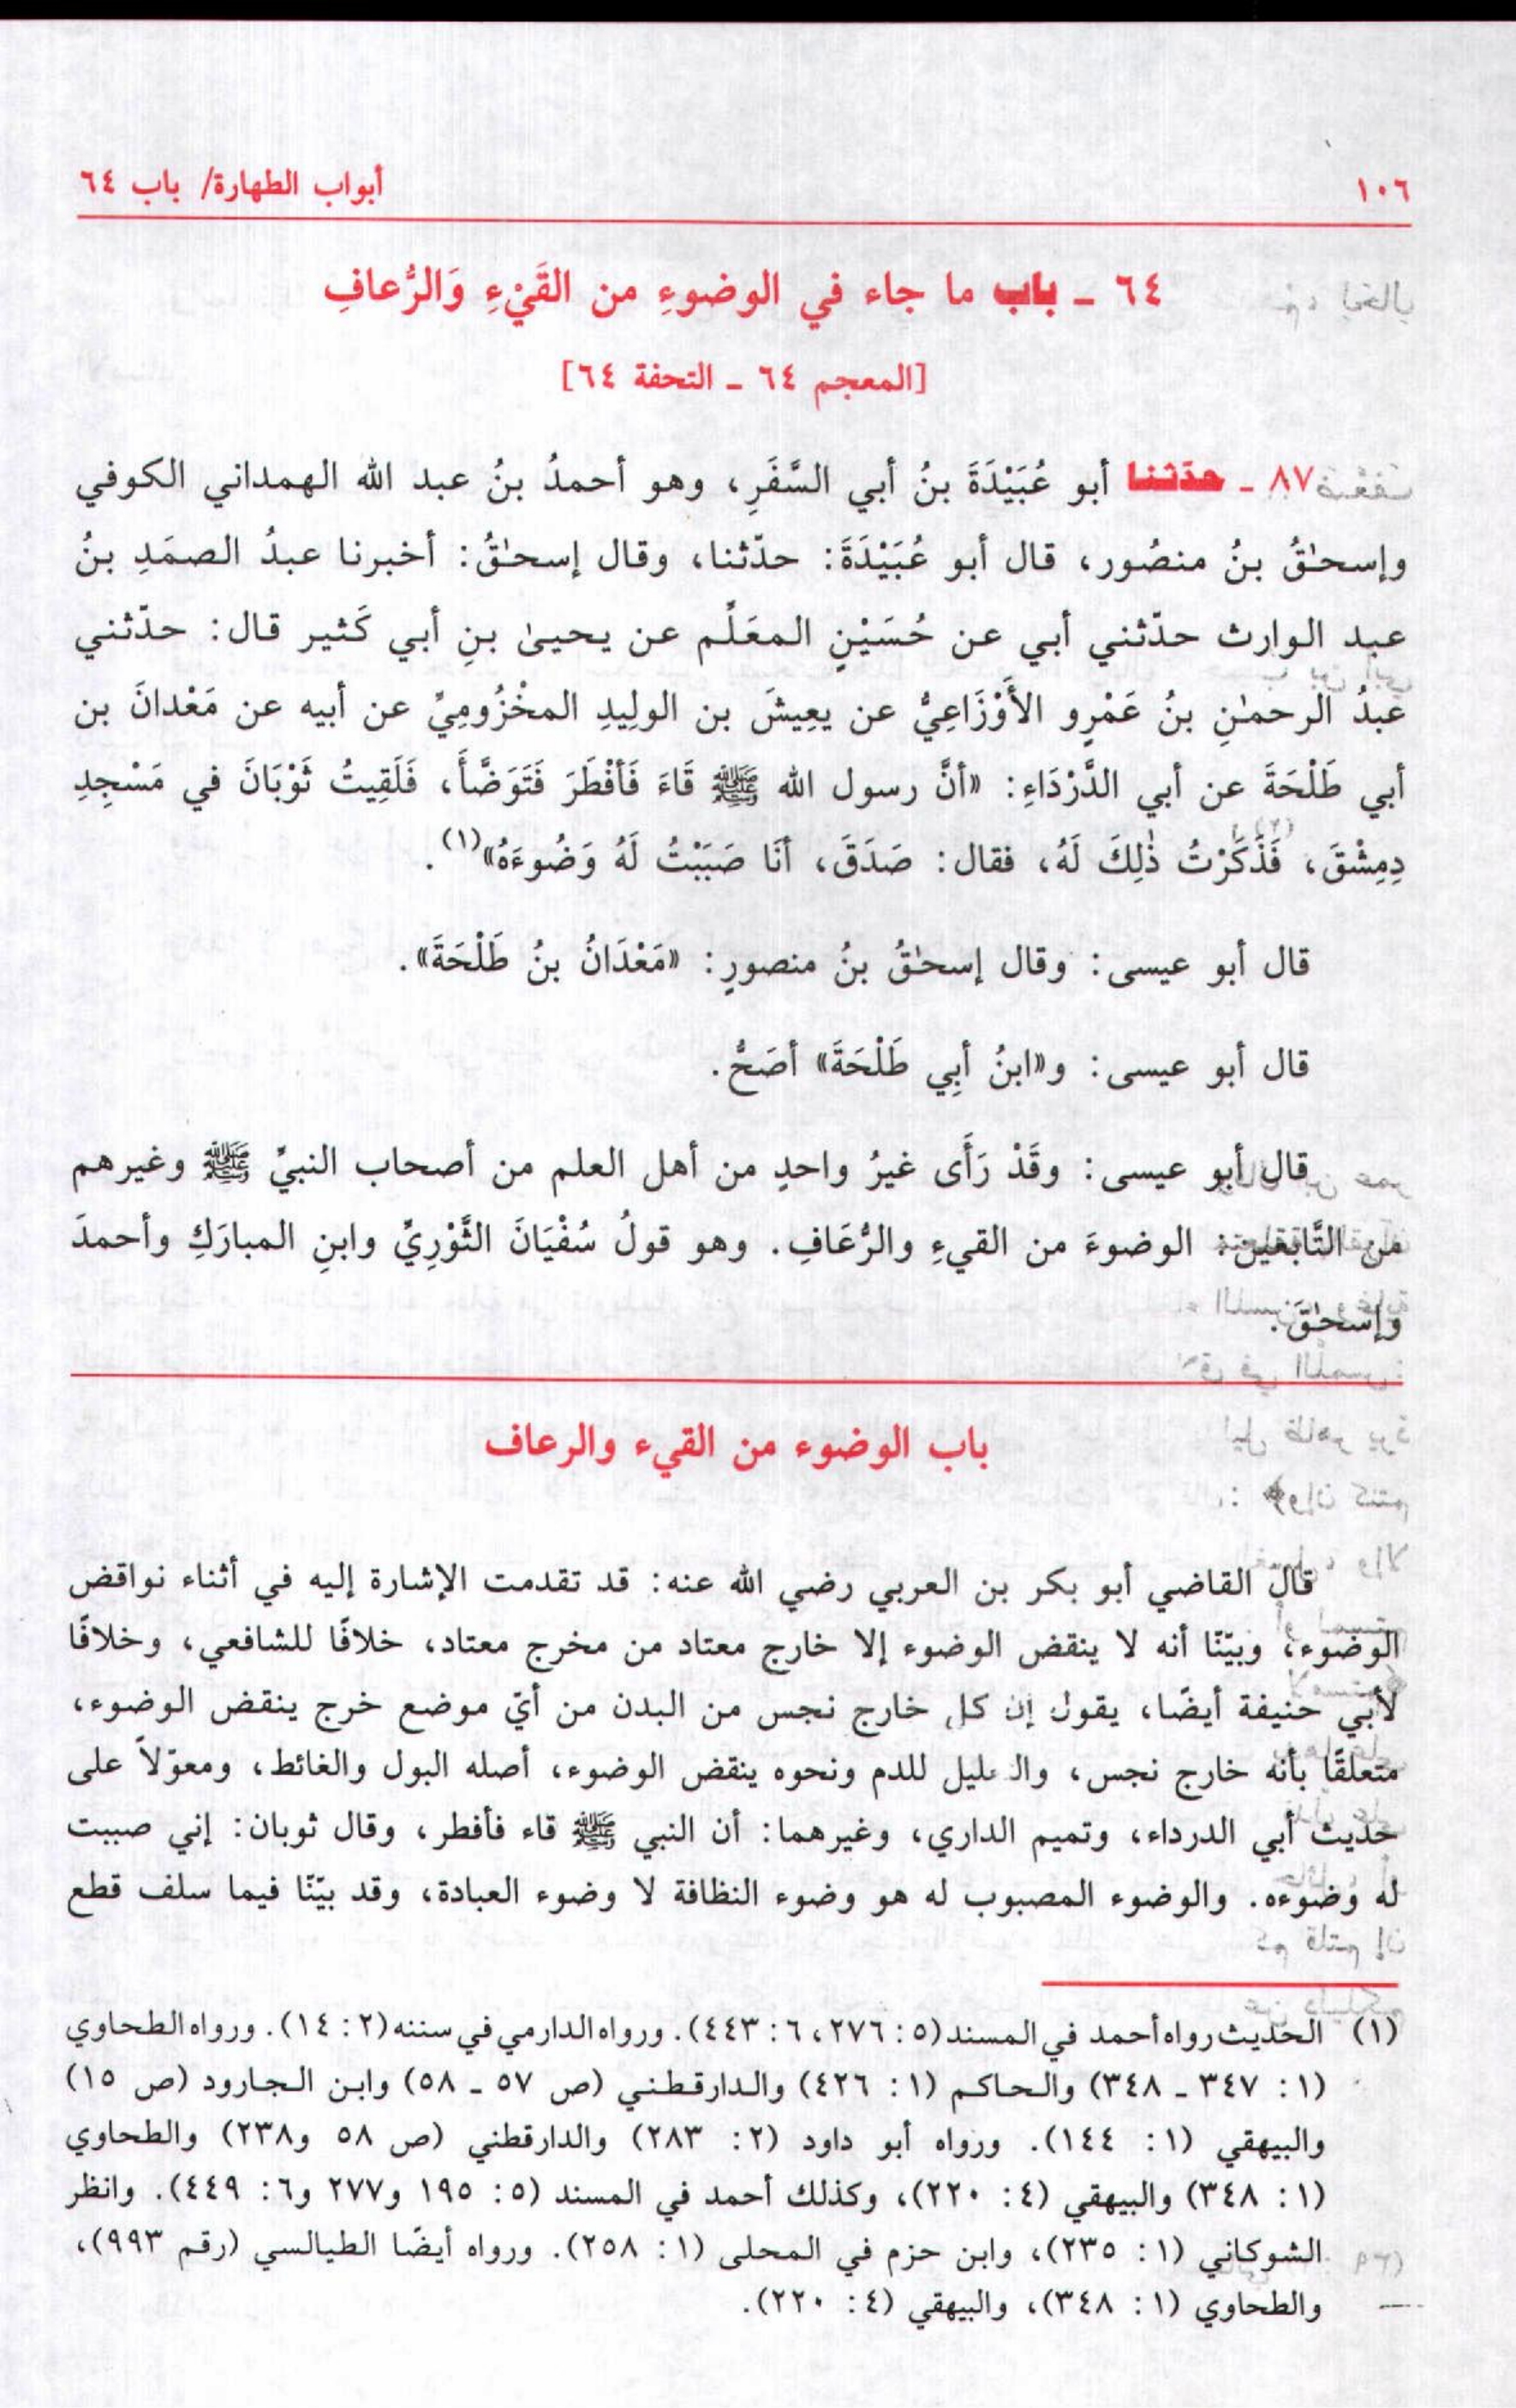 ١٠٦ أبواب الطهارة/ باب ٦٤
٦٤ ـ باب ما جاء في الوضوءِ من القَيْءِ وَالرُّعافِ
[المعجم ٦٤ ـ التحفة ٦٤]
٨٧ ـ حدّثنا أبو عُبَيْدَةَ بنُ أبي السَّفَرِ، وهو أحمدُ بنُ عبد الله الهمداني الكوفي
وإسحٰقُ بنُ منصُور، قال أبو عُبَيْدَةَ: حدّثنا، وقال إسحٰقُ: أخبرنا عبدُ الصمَدِ بنُ
عبد الوارث حدّثني أبي عن حُسَيْنٍ المعَلِّم عن يحيىٰ بنِ أبي كَثير قال: حدّثني
عبدُ الرحمٰنِ بنُ عَمْرٍو الأَوْزَاعِيُّ عن يعِيشَ بن الولِيدِ المخْزُومِيِّ عن أبيه عن مَعْدانَ بن
أبي طَلْحَةَ عن أبي الدَّرْدَاءِ: «أنَّ رسول الله ﷺ قَاءَ فَأَفْطَرَ فَتَوَضَّأَ، فَلَقِيتُ ثَوْبَانَ في مَسْجِدِ
دِمِشْقَ، فَذَكَرْتُ ذٰلِكَ لَهُ، فقال: صَدَقَ، أنَا صَبَبْتُ لَهُ وَضُوءَهُ»(١).
قال أبو عيسى: وقال إسحٰقُ بنُ منصورٍ: «مَعْدَانُ بنُ طَلْحَةَ».
قال أبو عيسى: و«ابنُ أبِي طَلْحَةَ» أصَحُّ.
قال أبو عيسى: وقَدْ رَأَى غيرُ واحدٍ من أهل العلم من أصحاب النبيِّ ﷺ وغيرهم
من التَّابعين: الوضوءَ من القيءِ والرُّعَافِ. وهو قولُ سُفْيَانَ الثَّوْرِيِّ وابنِ المبارَكِ وأحمدَ
وإسحٰقَ.
باب الوضوء من القيء والرعاف
قال القاضي أبو بكر بن العربي رضي الله عنه: قد تقدمت الإشارة إليه في أثناء نواقض
الوضوء، وبيّنّا أنه لا ينقض الوضوء إلا خارج معتاد من مخرج معتاد، خلافًا للشافعي، وخلافًا
لأبي حنيفة أيضًا، يقول إن كل خارج نجس من البدن من أيّ موضع خرج ينقض الوضوء،
متعلقًا بأنه خارج نجس، والدليل للدم ونحوه ينقض الوضوء، أصله البول والغائط، ومعوّلاً على
حديث أبي الدرداء، وتميم الداري، وغيرهما: أن النبي ﷺ قاء فأفطر، وقال ثوبان: إني صببت
له وضوءه. والوضوء المصبوب له هو وضوء النظافة لا وضوء العبادة، وقد بيّنّا فيما سلف قطع
(١) الحديث رواه أحمد في المسند (٥: ٢٧٦، ٦: ٤٤٣). ورواه الدارمي في سننه (٢: ١٤). ورواه الطحاوي
(١: ٣٤٧ ـ ٣٤٨) والحاكم (١: ٤٢٦) والدارقطني (ص ٥٧ ـ ٥٨) وابن الجارود (ص ١٥)
والبيهقي (١: ١٤٤). ورواه أبو داود (٢: ٢٨٣) والدارقطني (ص ٥٨ و٢٣٨) والطحاوي
(١: ٣٤٨) والبيهقي (٤: ٢٢٠)، وكذلك أحمد في المسند (٥: ١٩٥ و٢٧٧ و٦: ٤٤٩). وانظر
الشوكاني (١: ٢٣٥)، وابن حزم في المحلى (١: ٢٥٨). ورواه أيضًا الطيالسي (رقم ٩٩٣)،
والطحاوي (١: ٣٤٨)، والبيهقي (٤: ٢٢٠).